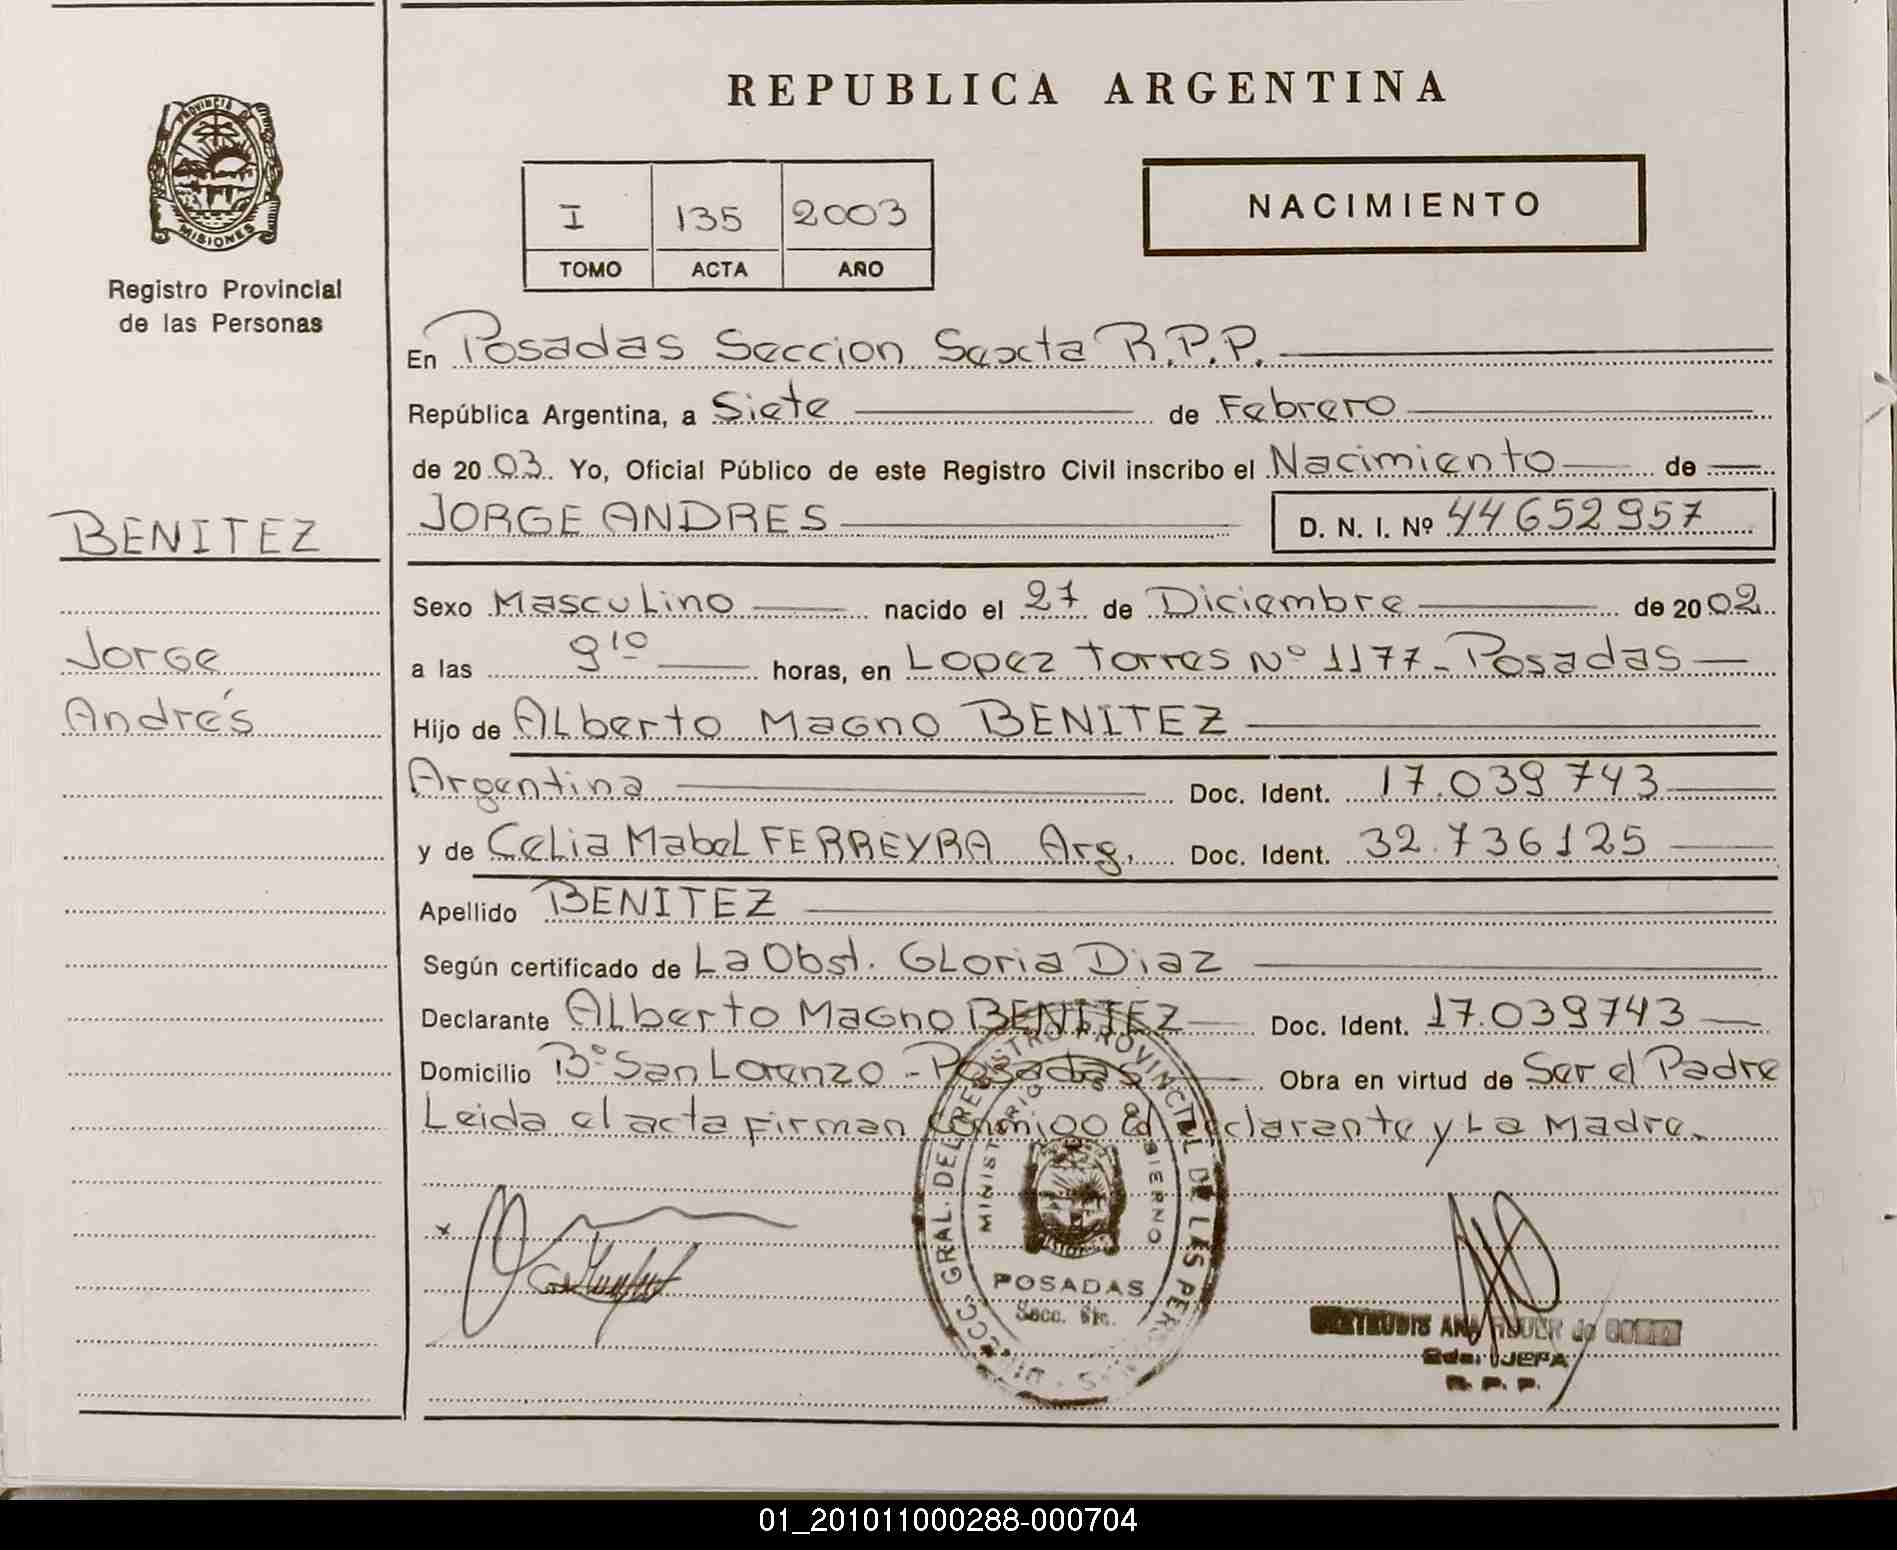 REPUBLICA ARGENTINA
PROVINCIA DE
MISIONES
Registro Provincial
de las Personas
I 135 2003
TOMO ACTA AÑO
NACIMIENTO
En Posadas Seccion Sexta R.P.P.
República Argentina, a Siete de Febrero
de 2003. Yo, Oficial Público de este Registro Civil inscribo el Nacimiento de
JORGE ANDRES D. N. I. Nº 44652957
BENITEZ
Jorge
Andrés
Sexo Masculino nacido el 27 de Diciembre de 2002
a las 9 10 horas, en Lopez Torres Nº 1177 - Posadas
Hijo de Alberto Magno BENITEZ
Argentina Doc. Ident. 17.039743
y de Celia Mabel FERREYRA Arg. Doc. Ident. 32.736125
Apellido BENITEZ
Según certificado de La Obst. Gloria Diaz
Declarante Alberto Magno BENITEZ Doc. Ident. 17.039743
Domicilio Bº San Lorenzo - Posadas Obra en virtud de Ser el Padre
Leida el acta firman Conmigo el Declarante y La Madre.
GRAL. DEL REGISTRO PROVINCIAL DE LAS PERSONAS
MINISTERIO GOBIERNO
POSADAS
Secc.
ANA de
JEFA
R. P. P.
01_201011000288-000704